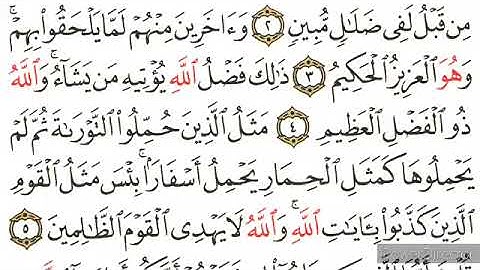 مِن قَبْلُ لَفِى ضَلَـٰلٍ مُّبِينٍ ٢ وَءَاخَرِينَ مِنْهُمْ لَمَّا يَلْحَقُوا۟ بِهِمْ ۚ
وَهُوَ ٱلْعَزِيزُ ٱلْحَكِيمُ ٣ ذَٰلِكَ فَضْلُ ٱللَّهِ يُؤْتِيهِ مَن يَشَآءُ ۚ وَٱللَّهُ
ذُو ٱلْفَضْلِ ٱلْعَظِيمِ ٤ مَثَلُ ٱلَّذِينَ حُمِّلُوا۟ ٱلتَّوْرَىٰةَ ثُمَّ لَمْ
يَحْمِلُوهَا كَمَثَلِ ٱلْحِمَارِ يَحْمِلُ أَسْفَارًۢا ۚ بِئْسَ مَثَلُ ٱلْقَوْمِ
ٱلَّذِينَ كَذَّبُوا۟ بِـَٔايَـٰتِ ٱللَّهِ ۚ وَٱللَّهُ لَا يَهْدِى ٱلْقَوْمَ ٱلظَّـٰلِمِينَ ٥